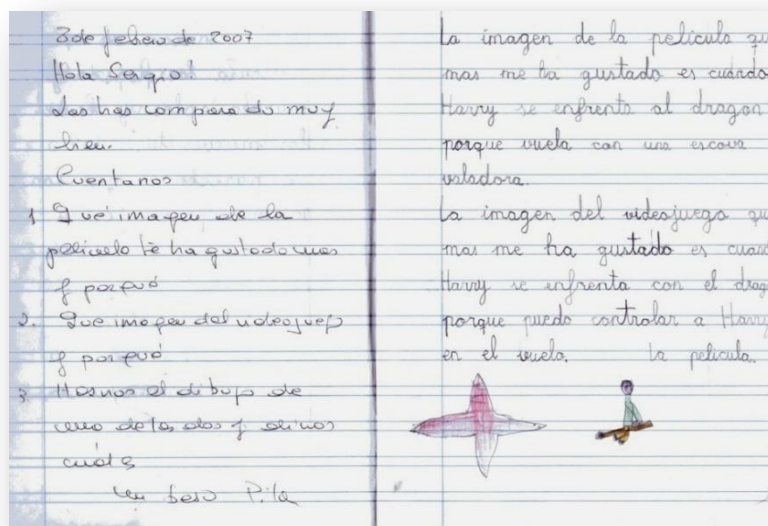 3 de febrero de 2007
Hola Sergio!
Las has comparado muy
bien.
Cuentanos
1 Qué imagen de la
pelicula te ha gustado mas
y porqué
2. Que imagen del videojuego
y porqué
3 Haznos el dibujo de
uno de los dos y dinos
cuál es
Un beso Pilar
La imagen de la pelicula qu
mas me ha gustado es cuando
Harry se enfrenta al dragon
porque vuela con una escova
valadora.
La imagen del videojuego qu
mas me ha gustado es cuand
Harry se enfrenta con el drag
porque puedo controlar a Harry
en el vuelo. La pelicula.